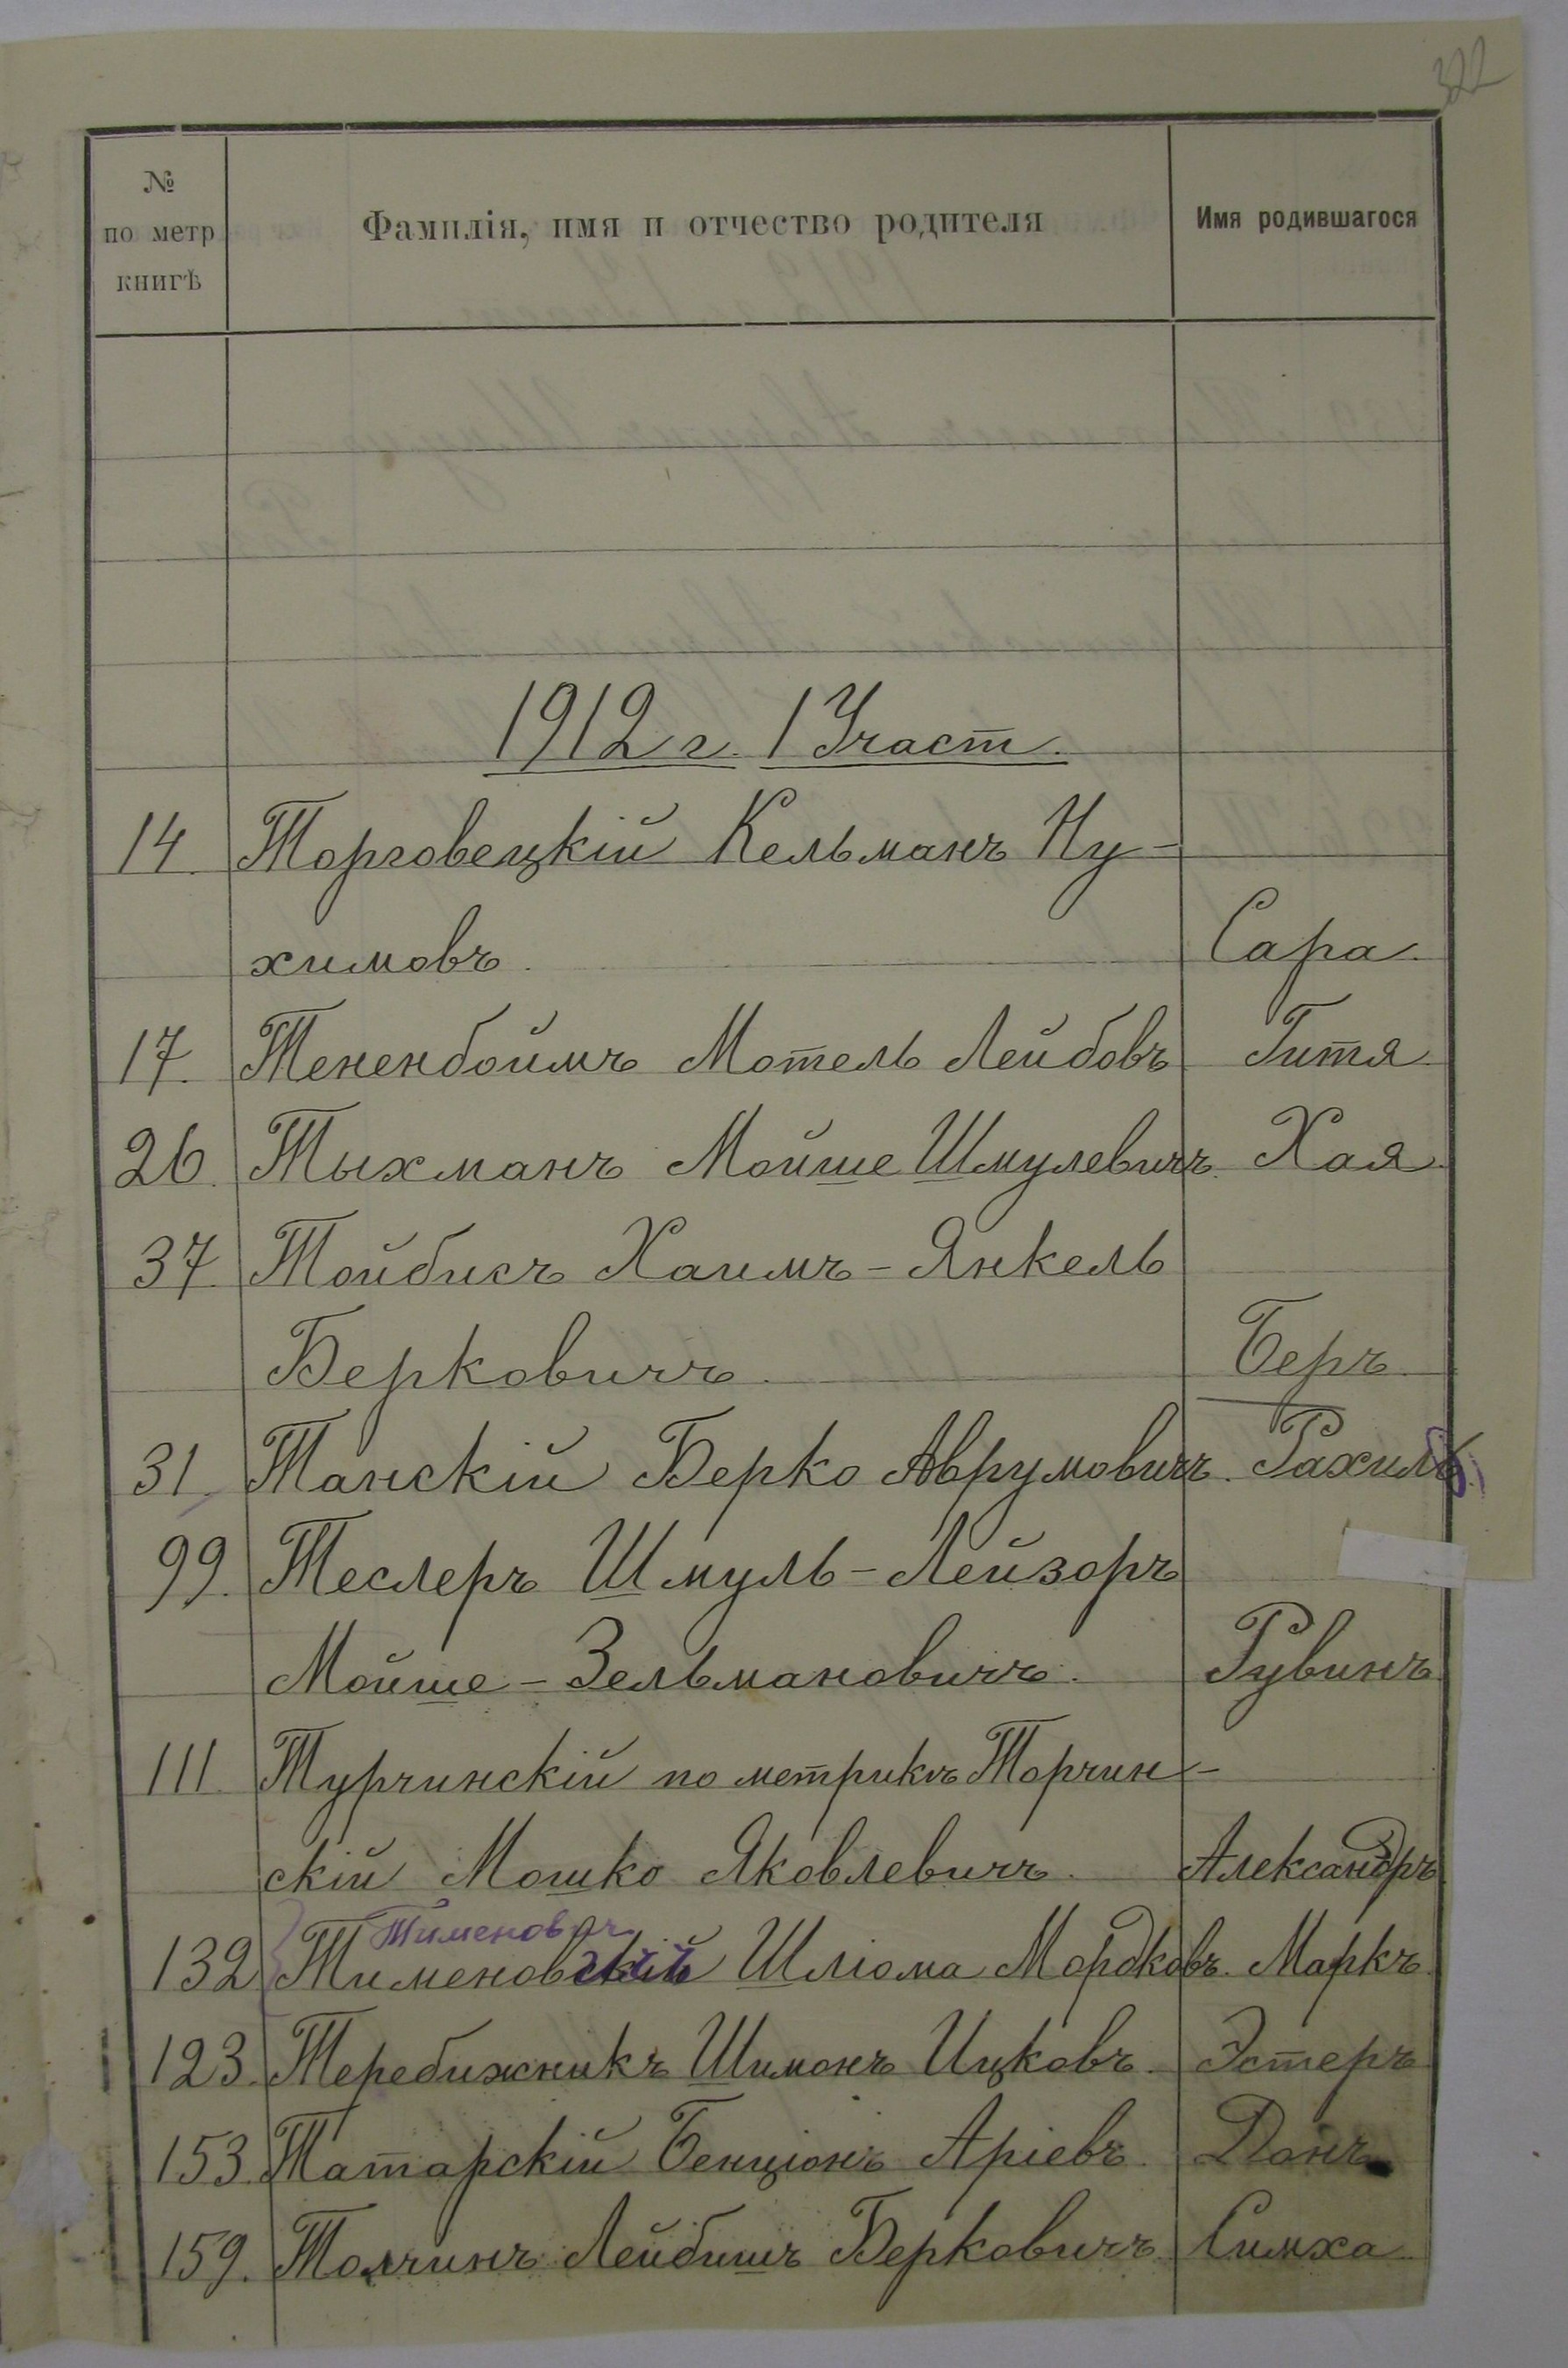 322
№ по метр книгѣ
Фамилія, имя и отчество родителя
Имя родившагося
1912 г. 1 Участ.
14. Торговецкій Кельманъ Ну-
химовъ. Сара.
17. Тененбоймъ Мотель Лейбовъ Гитя.
26. Тыхманъ Мойше Шмулевичъ. Хая.
37. Тойбисъ Хаимъ-Янкель
Берковичъ. Беръ.
31. Танскій Берко Аврумовичъ. Рахиль.
99. Теслеръ Шмуль-Лейзоръ
Мойше-Зельмановичъ. Рувинъ.
111. Турчинскій по метрикѣ Торчин-
скій Мошко Яковлевичъ. Александръ
Тименов
132. Тименовскій Шліома Мордковъ. Маркъ.
123. Теребижникъ Шимонъ Ицковъ. Эстеръ
153. Татарскій Бенціонъ Аріевъ. Донъ
159. Толчинъ Лейбишъ Берковичъ. Симха.